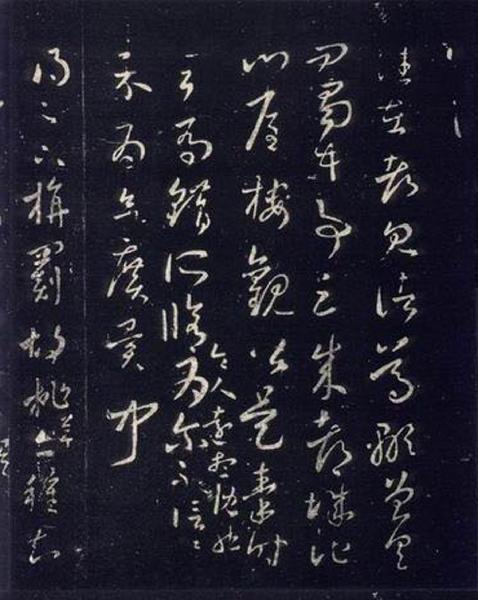 往在都見諸葛顒曾具
問蜀中事云成都城池
門屋樓觀皆是秦時
司馬錯所脩令人遠想慨然為爾不信一一
示為欲廣異聞
得足下旃罽胡桃藥二種知